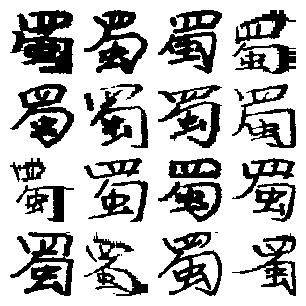 蜀蜀蜀蜀
蜀蜀蜀蜀
蜀蜀蜀蜀
蜀蜀蜀蜀